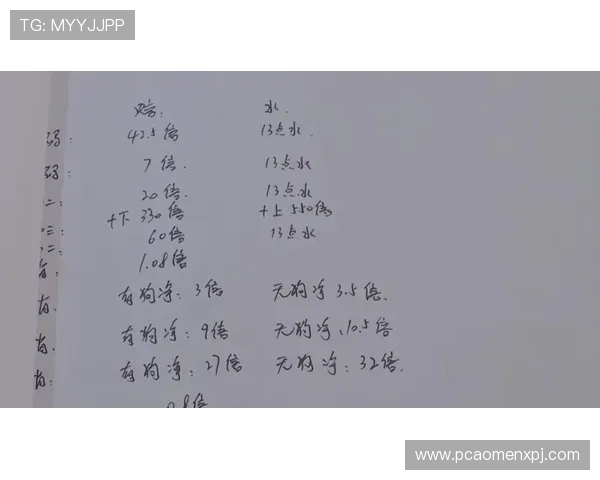 TG: MYYJJPP
赔: 水.
码: 42.5倍 13点水.
码: 7倍. 13点水
二: 20倍. 13点水
十下 330倍 十上 550倍
三: 60倍 13点水
二: 1.08倍
肖:
肖. 有狗净: 3倍 无狗净 3.5倍.
肖. 有狗净: 9倍 无狗净、10.5倍
肖: 有狗净: 27倍 无狗净: 32倍.
www.pcaomenxpj.com